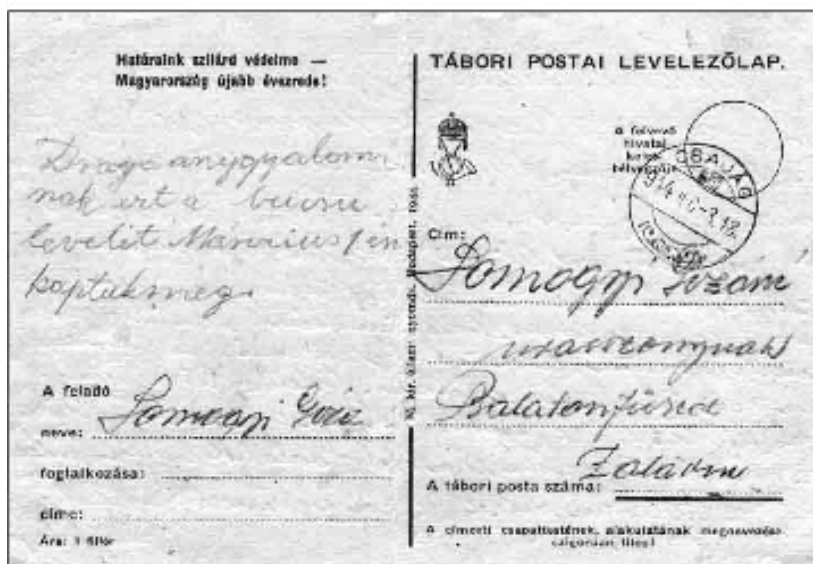 Határaink szilárd védelme —
Magyarország újabb évezrede!
Draga anygyalom
nak ezt a bucsu
levelit Március 1 én
kaptukmeg.
A feladó
neve: Somogyi Géza
foglalkozása:
címe:
Ára: 1 fillér
M. kir. állami nyomda, Budapest,
TÁBORI POSTAI LEVELEZŐLAP.
A felvevő
hivatal
keleti
bélyegzője
CSAJÁG
Cím:
Somogyi
uraszonynak
Balatonfüred
Zalavm
A tábori posta száma:
A címzett csapattestének, alakulatának megnevezése
szigorúan tilos!